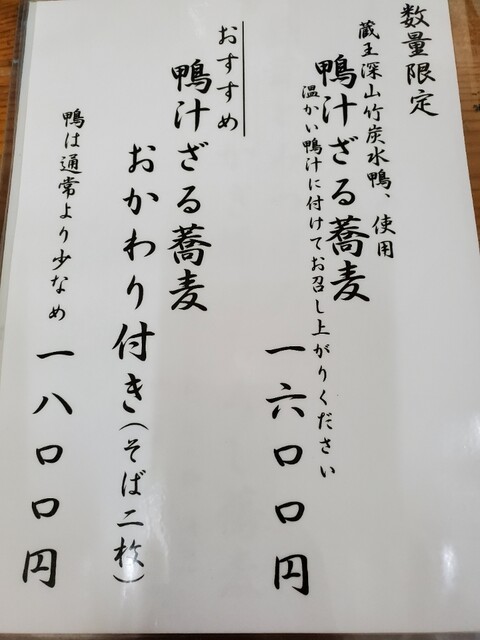 数量限定
蔵王深山竹炭水鴨、使用
鴨汁ざる蕎麦
温かい鴨汁に付けてお召し上がりください
一六〇〇円
おすすめ
鴨汁ざる蕎麦
おかわり付き(そば二枚)
鴨は通常より少なめ
一八〇〇円